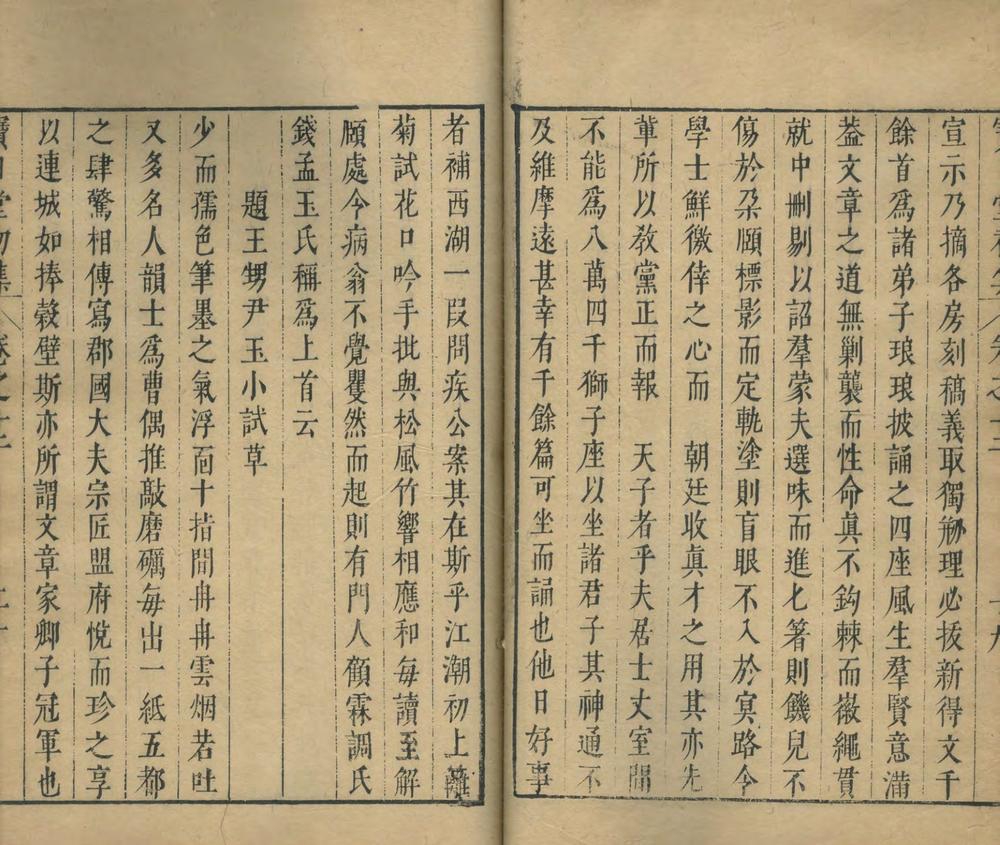 宣示乃摘各房刻稿義取獨觧理必拔新得文千
餘首爲諸弟子琅琅披誦之四座風生羣賢意滿
葢文章之道無剿襲而性命眞不鈎棘而徽繩貫
就中刪剔以詔羣蒙夫選味而進匕箸則饑兒不
傷於朶頤標影而定軌塗則盲眼不入於㝠路今
學士鮮徼倖之心而 朝廷收眞才之用其亦先
軰所以敎黨正而報 天子者乎夫居士丈室間
不能爲八萬四千獅子座以坐諸君子其神通不
及維摩遠甚幸有千餘篇可坐而誦也他日好事
者補西湖一叚問疾公案其在斯乎江潮初上籬
菊試花口吟手批與松風竹響相應和每讀至解
頤處今病翁不覺矍然而起則有門人顧霖調氏
錢孟玉氏稱爲上首云
題王甥尹玉小試草
少而孺色筆墨之氣浮靣十指間冉冉雲烟若吐
又多名人韻士爲曹偶推敲磨礪每出一紙五都
之肆驚相傳寫郡國大夫宗匠盟府恱而珍之享
以連城如捧穀璧斯亦所謂文章家卿子冠軍也
寶日堂初集 卷之十二